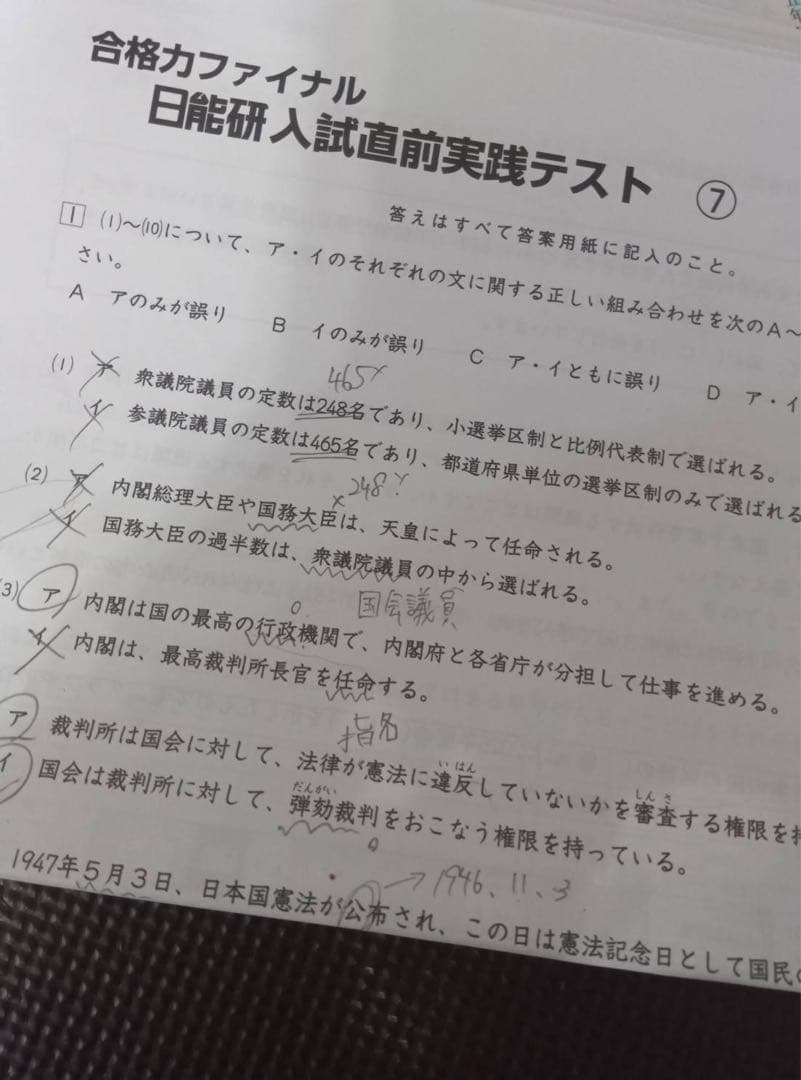 合格力ファイナル
日能研入試直前実践テスト ⑦
答えはすべて答案用紙に記入のこと。
1 (1)~(10)について、ア・イのそれぞれの文に関する正しい組み合わせを次のA~
さい。
A アのみが誤り B イのみが誤り C ア・イともに誤り D ア・イ
465
(1) ア 衆議院議員の定数は248名であり、小選挙区制と比例代表制で選ばれる。
イ 参議院議員の定数は465名であり、都道府県単位の選挙区制のみで選ばれる
248
(2) ア 内閣総理大臣や国務大臣は、天皇によって任命される。
イ 国務大臣の過半数は、衆議院議員の中から選ばれる。
国会議員
3) ア 内閣は国の最高の行政機関で、内閣府と各省庁が分担して仕事を進める。
イ 内閣は、最高裁判所長官を任命する。
指名
ア 裁判所は国会に対して、法律が憲法に違反していないかを審査する権限を持
いはん
しんさ
イ 国会は裁判所に対して、弾劾裁判をおこなう権限を持っている。
だんがい
→1946、11、3
1947年5月3日、日本国憲法が公布され、この日は憲法記念日として国民の